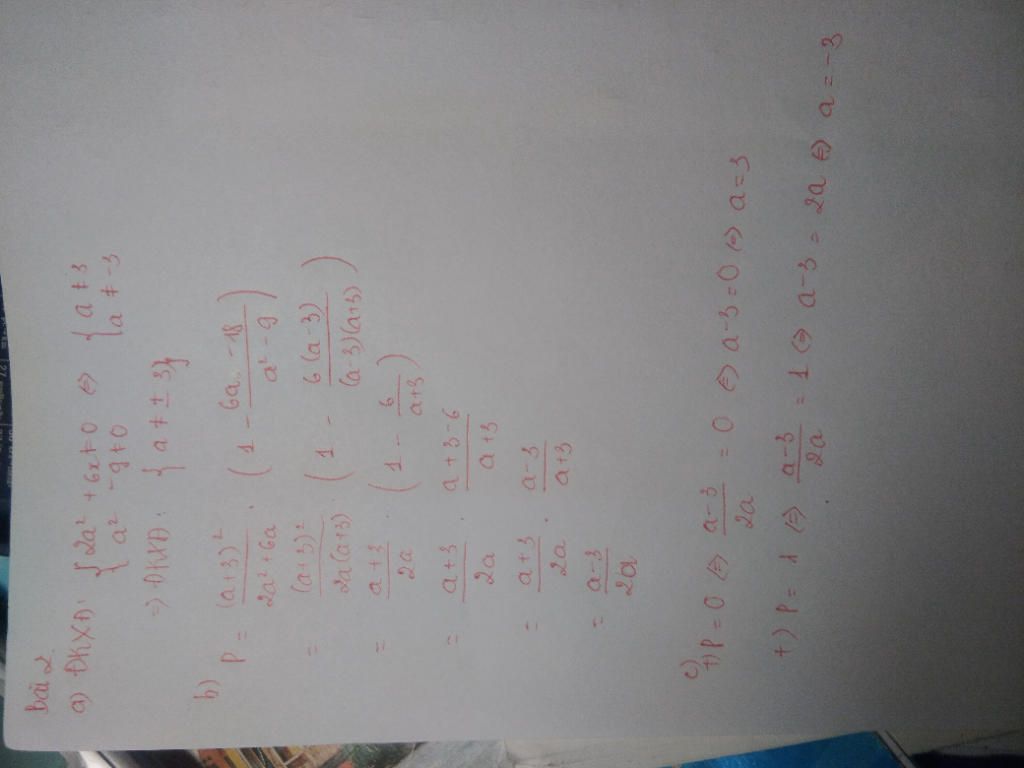 Bài 2.
a) ĐKXĐ: { 2a² + 6x ≠ 0 ⇔ { a ≠ 3
a² - 9 ≠ 0 a ≠ -3
=> ĐKXĐ: { a ≠ ± 3}
b) P = (a+3)² / (2a² + 6a) . (1 - (6a - 18) / (a² - 9))
= (a+3)² / (2a(a+3)) . (1 - 6(a-3) / ((a-3)(a+3)))
= (a+3) / 2a . (1 - 6 / (a+3))
= (a+3) / 2a . (a+3-6) / (a+3)
= (a+3) / 2a . (a-3) / (a+3)
= (a-3) / 2a
c)
+) P = 0 ⇔ (a-3) / 2a = 0 ⇔ a-3=0 ⇔ a=3
+) P = 1 ⇔ (a-3) / 2a = 1 ⇔ a-3 = 2a ⇔ a = -3